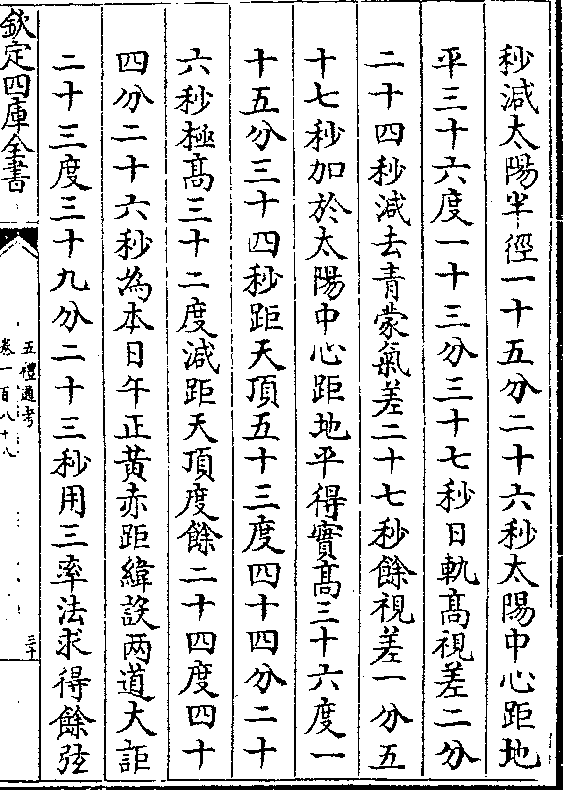 秒減太陽半徑一十五分二十六秒太陽中心距地
平三十六度一十三分三十七秒日軌高視差二分
二十四秒減去青蒙氣差二十七秒餘視差一分五
十七秒加於太陽中心距地平得實高三十六度一
十五分三十四秒距天頂五十三度四十四分二十
六秒極高三十二度減距天頂度餘二十四度四十
四分二十六秒為本日午正黃赤距緯設两道大詎
二十三度三十九分二十三秒用三率法求得餘弦
欽定四庫全書
五禮通考
卷一百八十八
三十